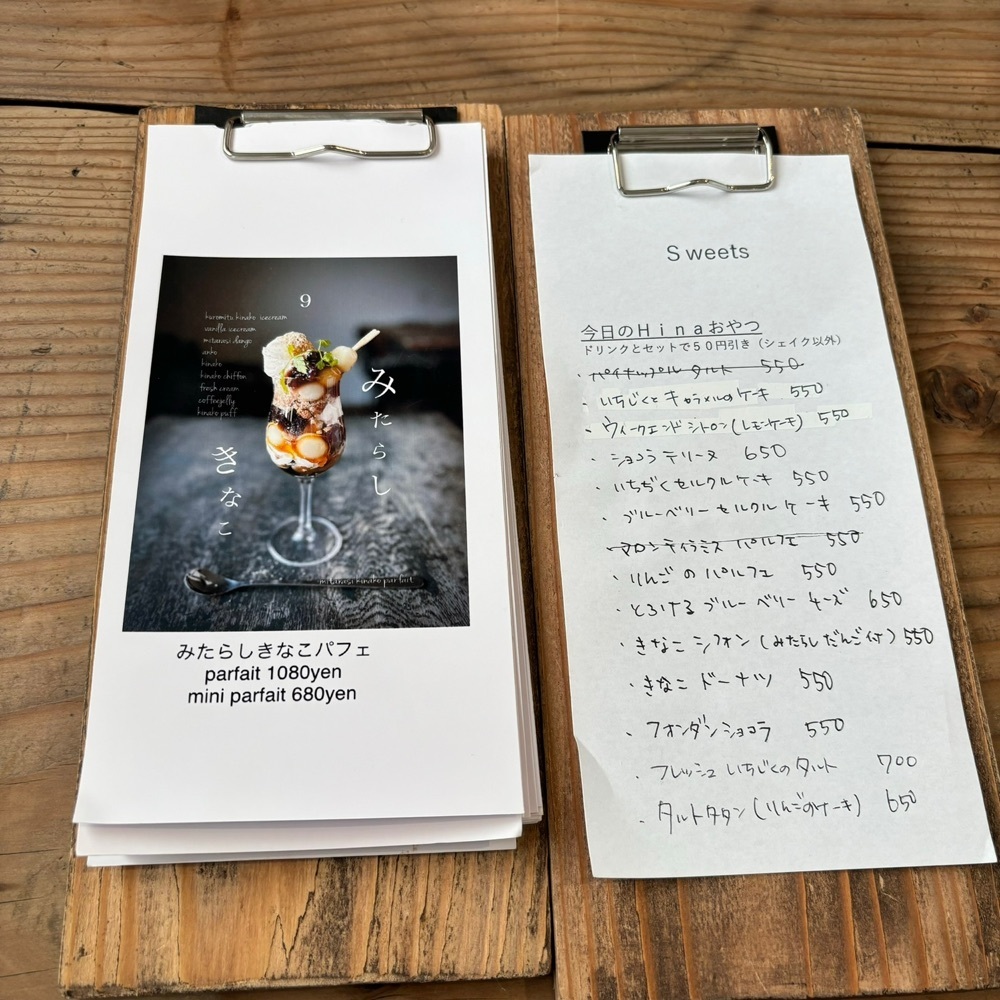 9
kuromitu kinako icecream
vanilla icecream
mitarasi dango
anko
kinako
kinako chiffon
fresh cream
coffeejelly
kinako puff
みたらし
きなこ
mitarasi kinako parfait
みたらしきなこパフェ
parfait 1080yen
mini parfait 680yen
Sweets
今日のHinaおやつ
ドリンクとセットで50円引き(シェイク以外)
・パイナップルタルト 550
・いちじくとキャラメルのケーキ 550
・ウィークエンドシトロン(レモンケーキ) 550
・ショコラテリーヌ 650
・いちぢくセルクルケーキ 550
・ブルーベリーセルクルケーキ 550
・マロンティラミスパルフェ 550
・りんごのパルフェ 550
・とろけるブルーベリーチーズ 650
・きなこシフォン(みたらしだんご付) 550
・きなこドーナツ 550
・フォンダンショコラ 550
・フレッシュいちじくのタルト 700
・タルトタタン(りんごのケーキ) 650